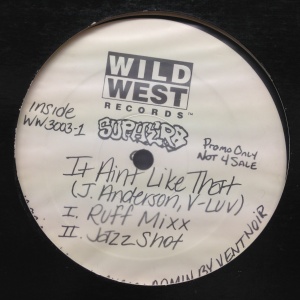 WILD
WEST
RECORDS™
SUPHERB
inside
WW3003-1
Promo Only
Not 4 Sale
It Aint Like That
(J. Anderson, V-Luv)
I. Ruff Mixx
II. Jazz Shot
ADMIN BY VENT NOIR